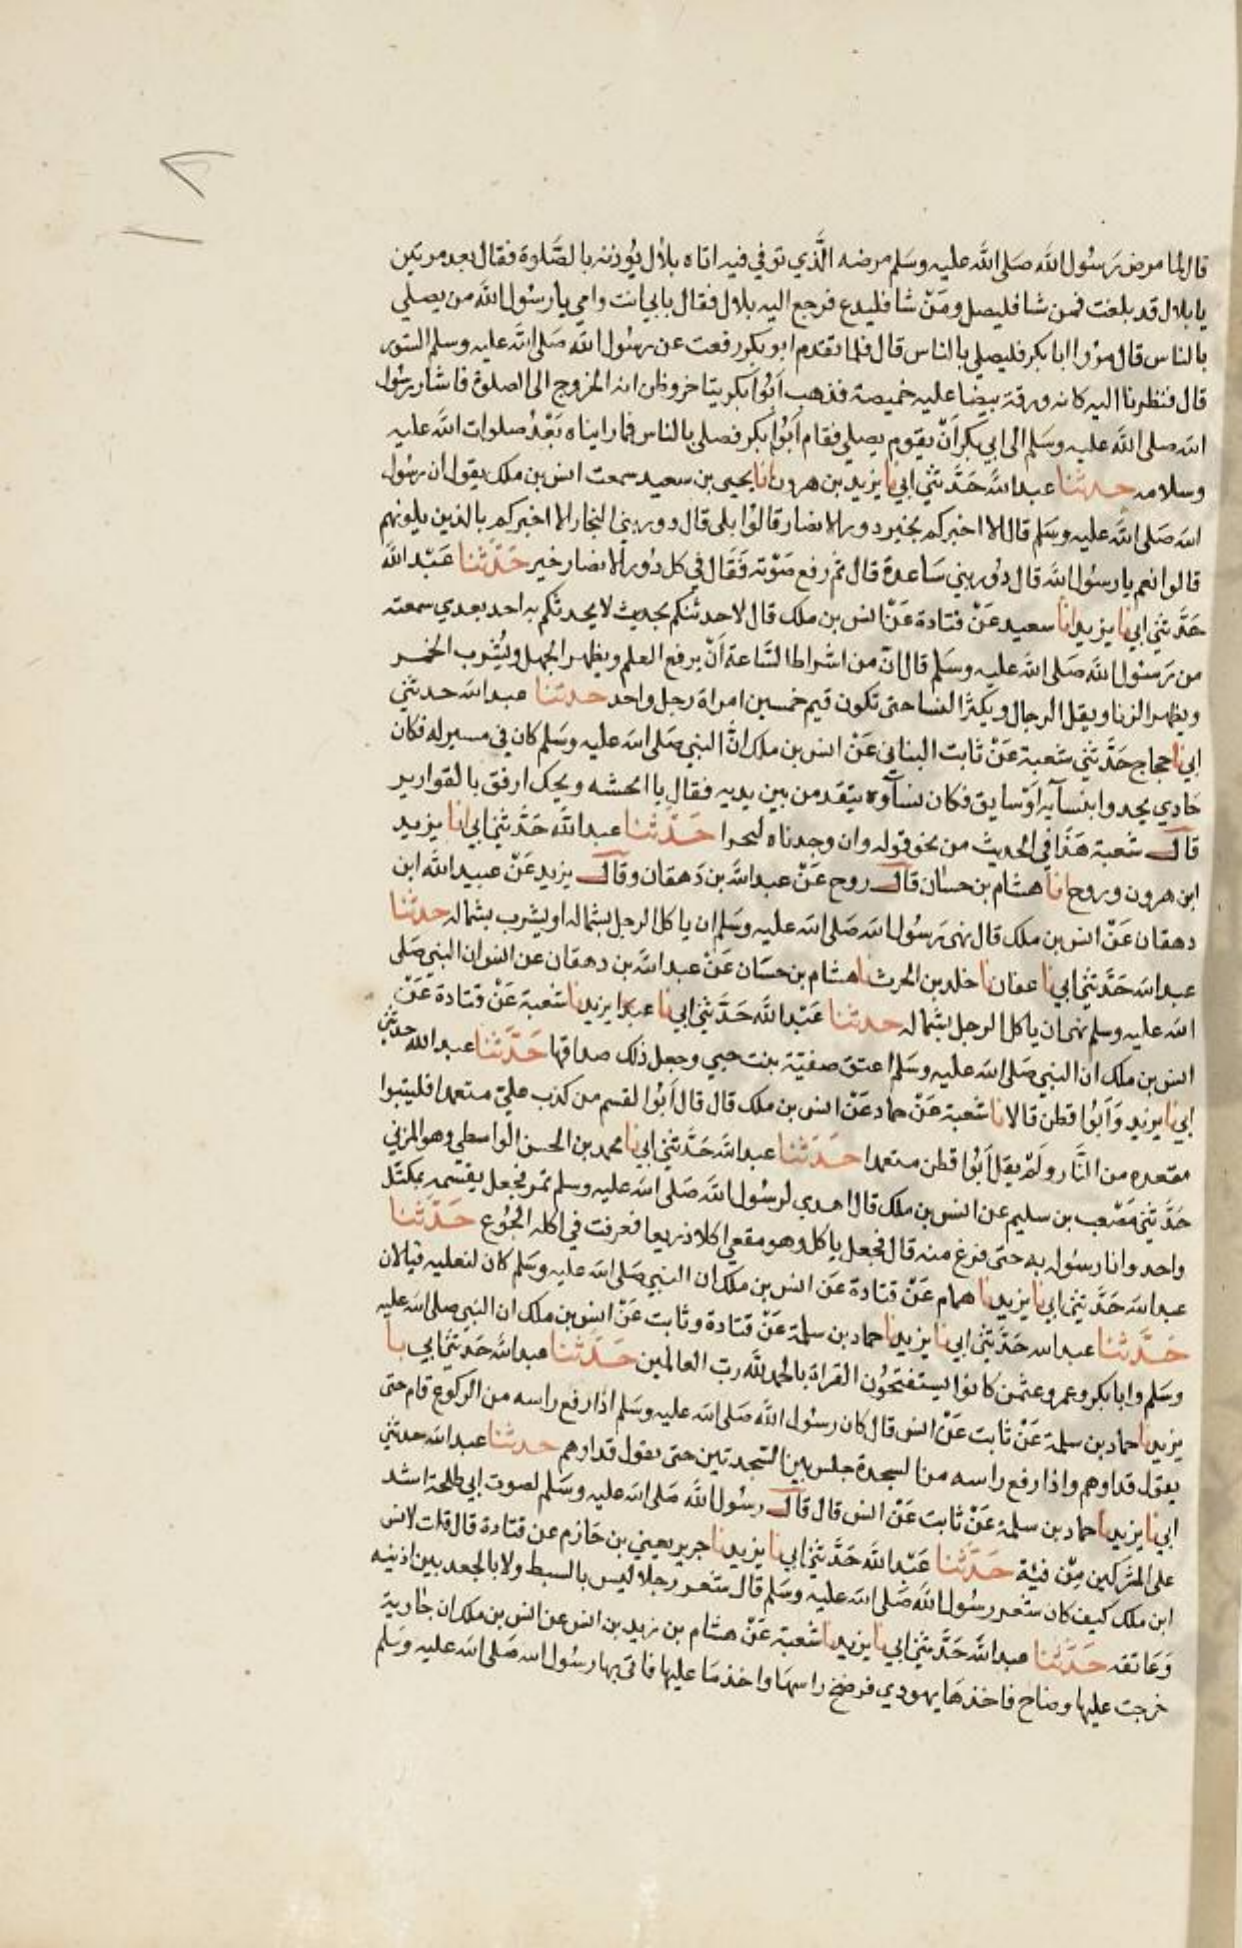 قال لما مرض رسول الله صلى الله عليه وسلم مرضه الذي توفي فيه اتاه بلال يؤذنه بالصلوة فقال بعد مرتين
يا بلال قد بلغت فمن شا فليصل ومن شا فليدع فرجع اليه بلال فقال بابي انت وامي يا رسول الله من يصلي
بالناس قال مروا ابا بكر فليصلي بالناس قال فلما تقدم ابو بكر رفعت عن رسول الله صلى الله عليه وسلم الستور
قال فنظرنا اليه كانه ورقة بيضا عليه خميصة فذهب ابوا بكر يتاخر وظن انه الخروج الى الصلوة فاشار رسول
الله صلى الله عليه وسلم الى ابي بكر ان يقوم يصلي فقام ابوا بكر فصلى بالناس فما رايناه بعد صلوات الله عليه
وسلامه حدثنا عبد الله حدثني ابي نا يزيد بن هرون انا يحيى بن سعيد سمعت انس بن ملك يقول ان رسول
الله صلى الله عليه وسلم قال الا اخبركم بخير دور الانصار قالوا بلى قال دور بني النجار الا اخبركم بالذين يلونهم
قالوا نعم يا رسول الله قال دور بني ساعدة قال ثم رفع صوته فقال في كل دور الانصار خير حدثنا عبد الله
حدثني ابي نا يزيد انا سعيد عن قتادة عن انس بن ملك قال لاحدثنكم بحديث لا يحدثكم به احد بعدي سمعته
من رسول الله صلى الله عليه وسلم قال ان من اشراط الساعة ان يرفع العلم ويظهر الجهل ويشرب الخمر
ويظهر الزنا ويقل الرجال ويكثر النسا حتى تكون قيم خمسين امراة رجل واحد حدثنا عبد الله حدثني
ابي نا حجاج حدثني شعبة عن ثابت البناني عن انس بن ملك ان النبي صلى الله عليه وسلم كان في مسير له فكان
حادي يحدوا بنسآيه او سايق فكان نسآوه يتقدمن بين يديه فقال يا انجشه ويحك ارفق بالقوارير
قال شعبة هذا في الحديث من نحو قوله وان وجدناه لبحرا حدثنا عبد الله حدثني ابي انا يزيد
ابن هرون وروح انا هشام بن حسان قال روح عن عبد الله بن دهقان وقال يزيد عن عبيد الله ابن
دهقان عن انس بن ملك قال نهى رسول الله صلى الله عليه وسلم ان ياكل الرجل بشماله او يشرب بشماله حدثنا
عبد الله حدثني ابي نا عفان نا خلد بن الحرث نا هشام بن حسان عن عبد الله بن دهقان عن انس ان النبي صلى
الله عليه وسلم نهى ان ياكل الرجل بشماله حدثنا عبد الله حدثني ابي نا يزيد نا شعبة عن قتادة عن
انس بن ملك ان النبي صلى الله عليه وسلم اعتق صفية بنت حيي وجعل ذلك صداقها حدثنا عبد الله حدثني
ابي نا يزيد وابوا قطن قالا نا شعبة عن حماد عن انس بن ملك قال قال ابوا القسم من كذب علي متعمدا فليتبوا
مقعده من النار ولم يقل ابوا قطن متعمدا حدثنا عبد الله حدثني ابي نا محمد بن الحسن الواسطي وهو المزني
حدثني مصعب بن سليم عن انس بن ملك قال اهدي لرسول الله صلى الله عليه وسلم تمر فجعل يقسمه بمكتل
واحد وانا رسوله به حتى فرغ منه قال فجعل ياكل وهو مقعي اكلا ذريعا فعرفت في اكله الجوع حدثنا
عبد الله حدثني ابي نا يزيد نا همام عن قتادة عن انس بن ملك ان النبي صلى الله عليه وسلم كان لنعليه قبالان
حدثنا عبد الله حدثني ابي نا يزيد نا حماد بن سلمة عن قتادة وثابت عن انس بن ملك ان النبي صلى الله عليه
وسلم وابا بكر وعمر وعثمن كانوا يستفتحون القراة بالحمد لله رب العالمين حدثنا عبد الله حدثني ابي نا
يزيد نا حماد بن سلمة عن ثابت عن انس قال كان رسول الله صلى الله عليه وسلم اذا رفع راسه من الركوع قام حتى
يقول قد اوهم واذا رفع راسه من السجدة جلس بين السجدتين حتى يقول قد اوهم حدثنا عبد الله حدثني
ابي نا يزيد نا حماد بن سلمة عن ثابت عن انس قال قال رسول الله صلى الله عليه وسلم لصوت ابي طلحة اشد
على المشركين من فية حدثنا عبد الله حدثني ابي نا يزيد نا جرير يعني بن حازم عن قتادة قال قلت لانس
ابن ملك كيف كان شعر رسول الله صلى الله عليه وسلم قال شعر رجلا ليس بالسبط ولا بالجعد بين اذنيه
وعاتقه حدثنا عبد الله حدثني ابي نا يزيد نا شعبة عن هشام بن زيد بن انس عن انس بن ملك ان جارية
خرجت عليها وضاح فاخذها يهودي فرضخ راسها واخذ ما عليها فاتي بها رسول الله صلى الله عليه وسلم